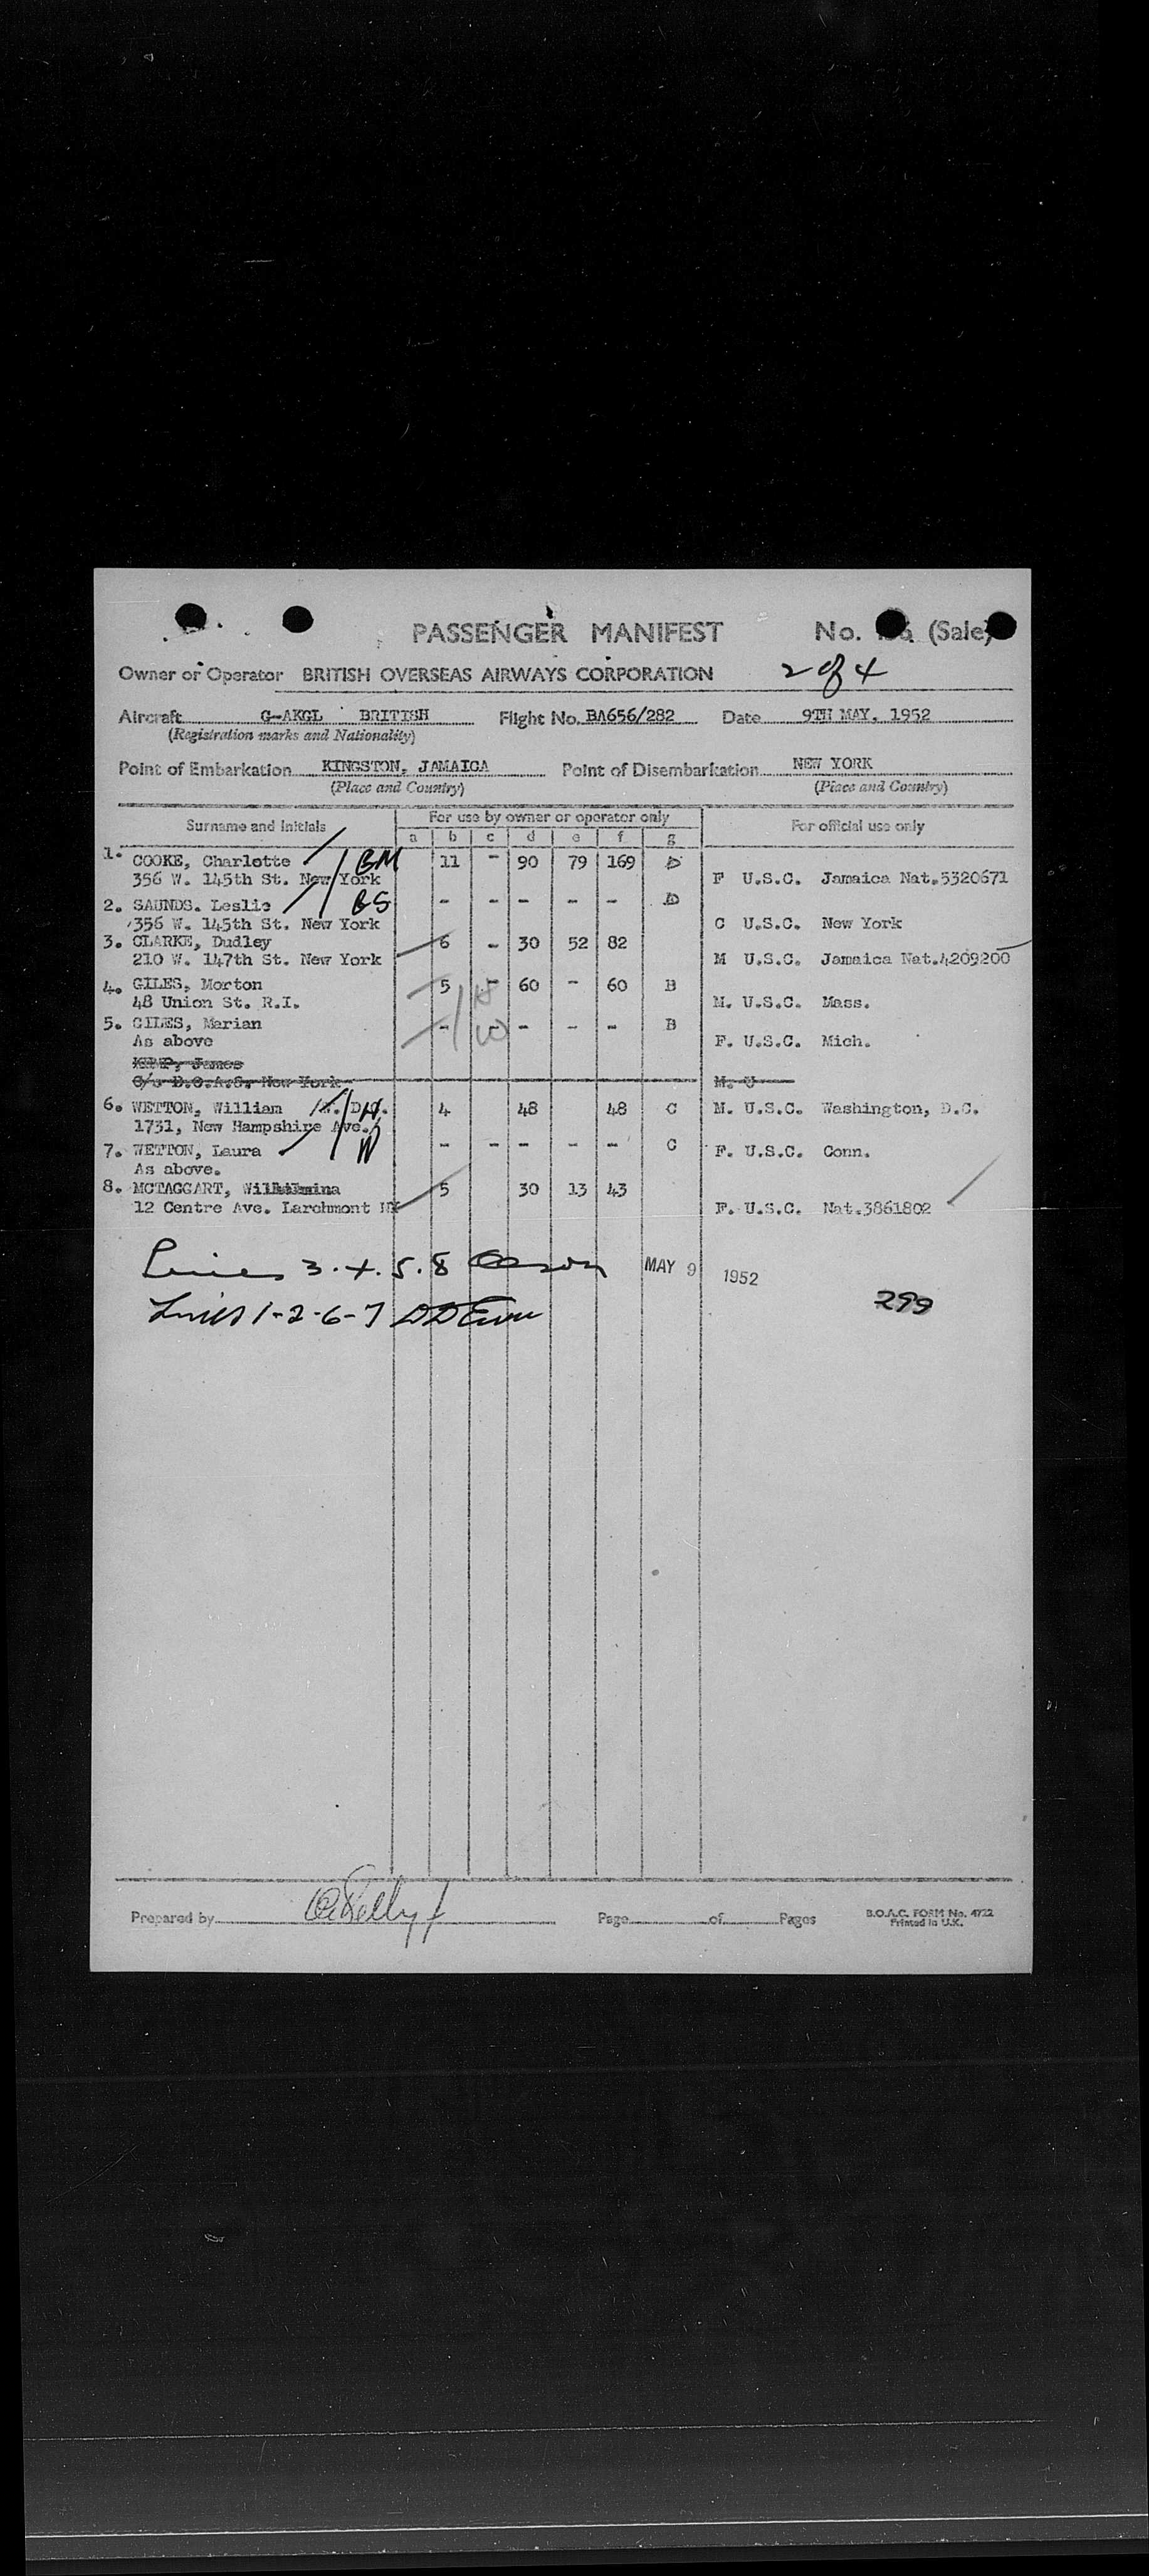 PASSENGER MANIFEST No. (Sale)
Owner or Operator BRITISH OVERSEAS AIRWAYS CORPORATION 2 of 4
Aircraft G-AKGL BRITISH Flight No. BA656/282 Date 9TH MAY, 1952
(Registration marks and Nationality)
Point of Embarkation KINGSTON, JAMAICA Point of Disembarkation NEW YORK
(Place and Country) (Place and Country)
Surname and Initials For use by owner or operator only For official use only
a b c d e f g
1. COOKE, Charlotte BM 11 - 90 79 169 D
356 W. 145th St. New York F U.S.C. Jamaica Nat.5320671
2. SAUNDS. Leslie BS - - - - - D
356 W. 145th St. New York C U.S.C. New York
3. CLARKE, Dudley 6 - 30 52 82
210 W. 147th St. New York M U.S.C. Jamaica Nat.4209200
4. GILES, Morton 5 - 60 - 60 B
48 Union St. R.I. M. U.S.C. Mass.
5. GILES, Marian - - - - B
As above F. U.S.C. Mich.
KEMP, James
C/o B.O.A.C. New York M. U
6. WETTON, William 4 48 48 C M. U.S.C. Washington, D.C.
1731, New Hampshire Ave.
7. WETTON, Laura W - - - - - C F. U.S.C. Conn.
As above.
8. MCTAGGART, Wilhelmina 5 30 13 43
12 Centre Ave. Larchmont NY F. U.S.C. Nat.3861802
Lines 3.4.5.8 MAY 9 1952
Lines 1-2-6-7 299
Prepared by Page of Pages B.O.A.C. FORM No. 4722
Printed in U.K.